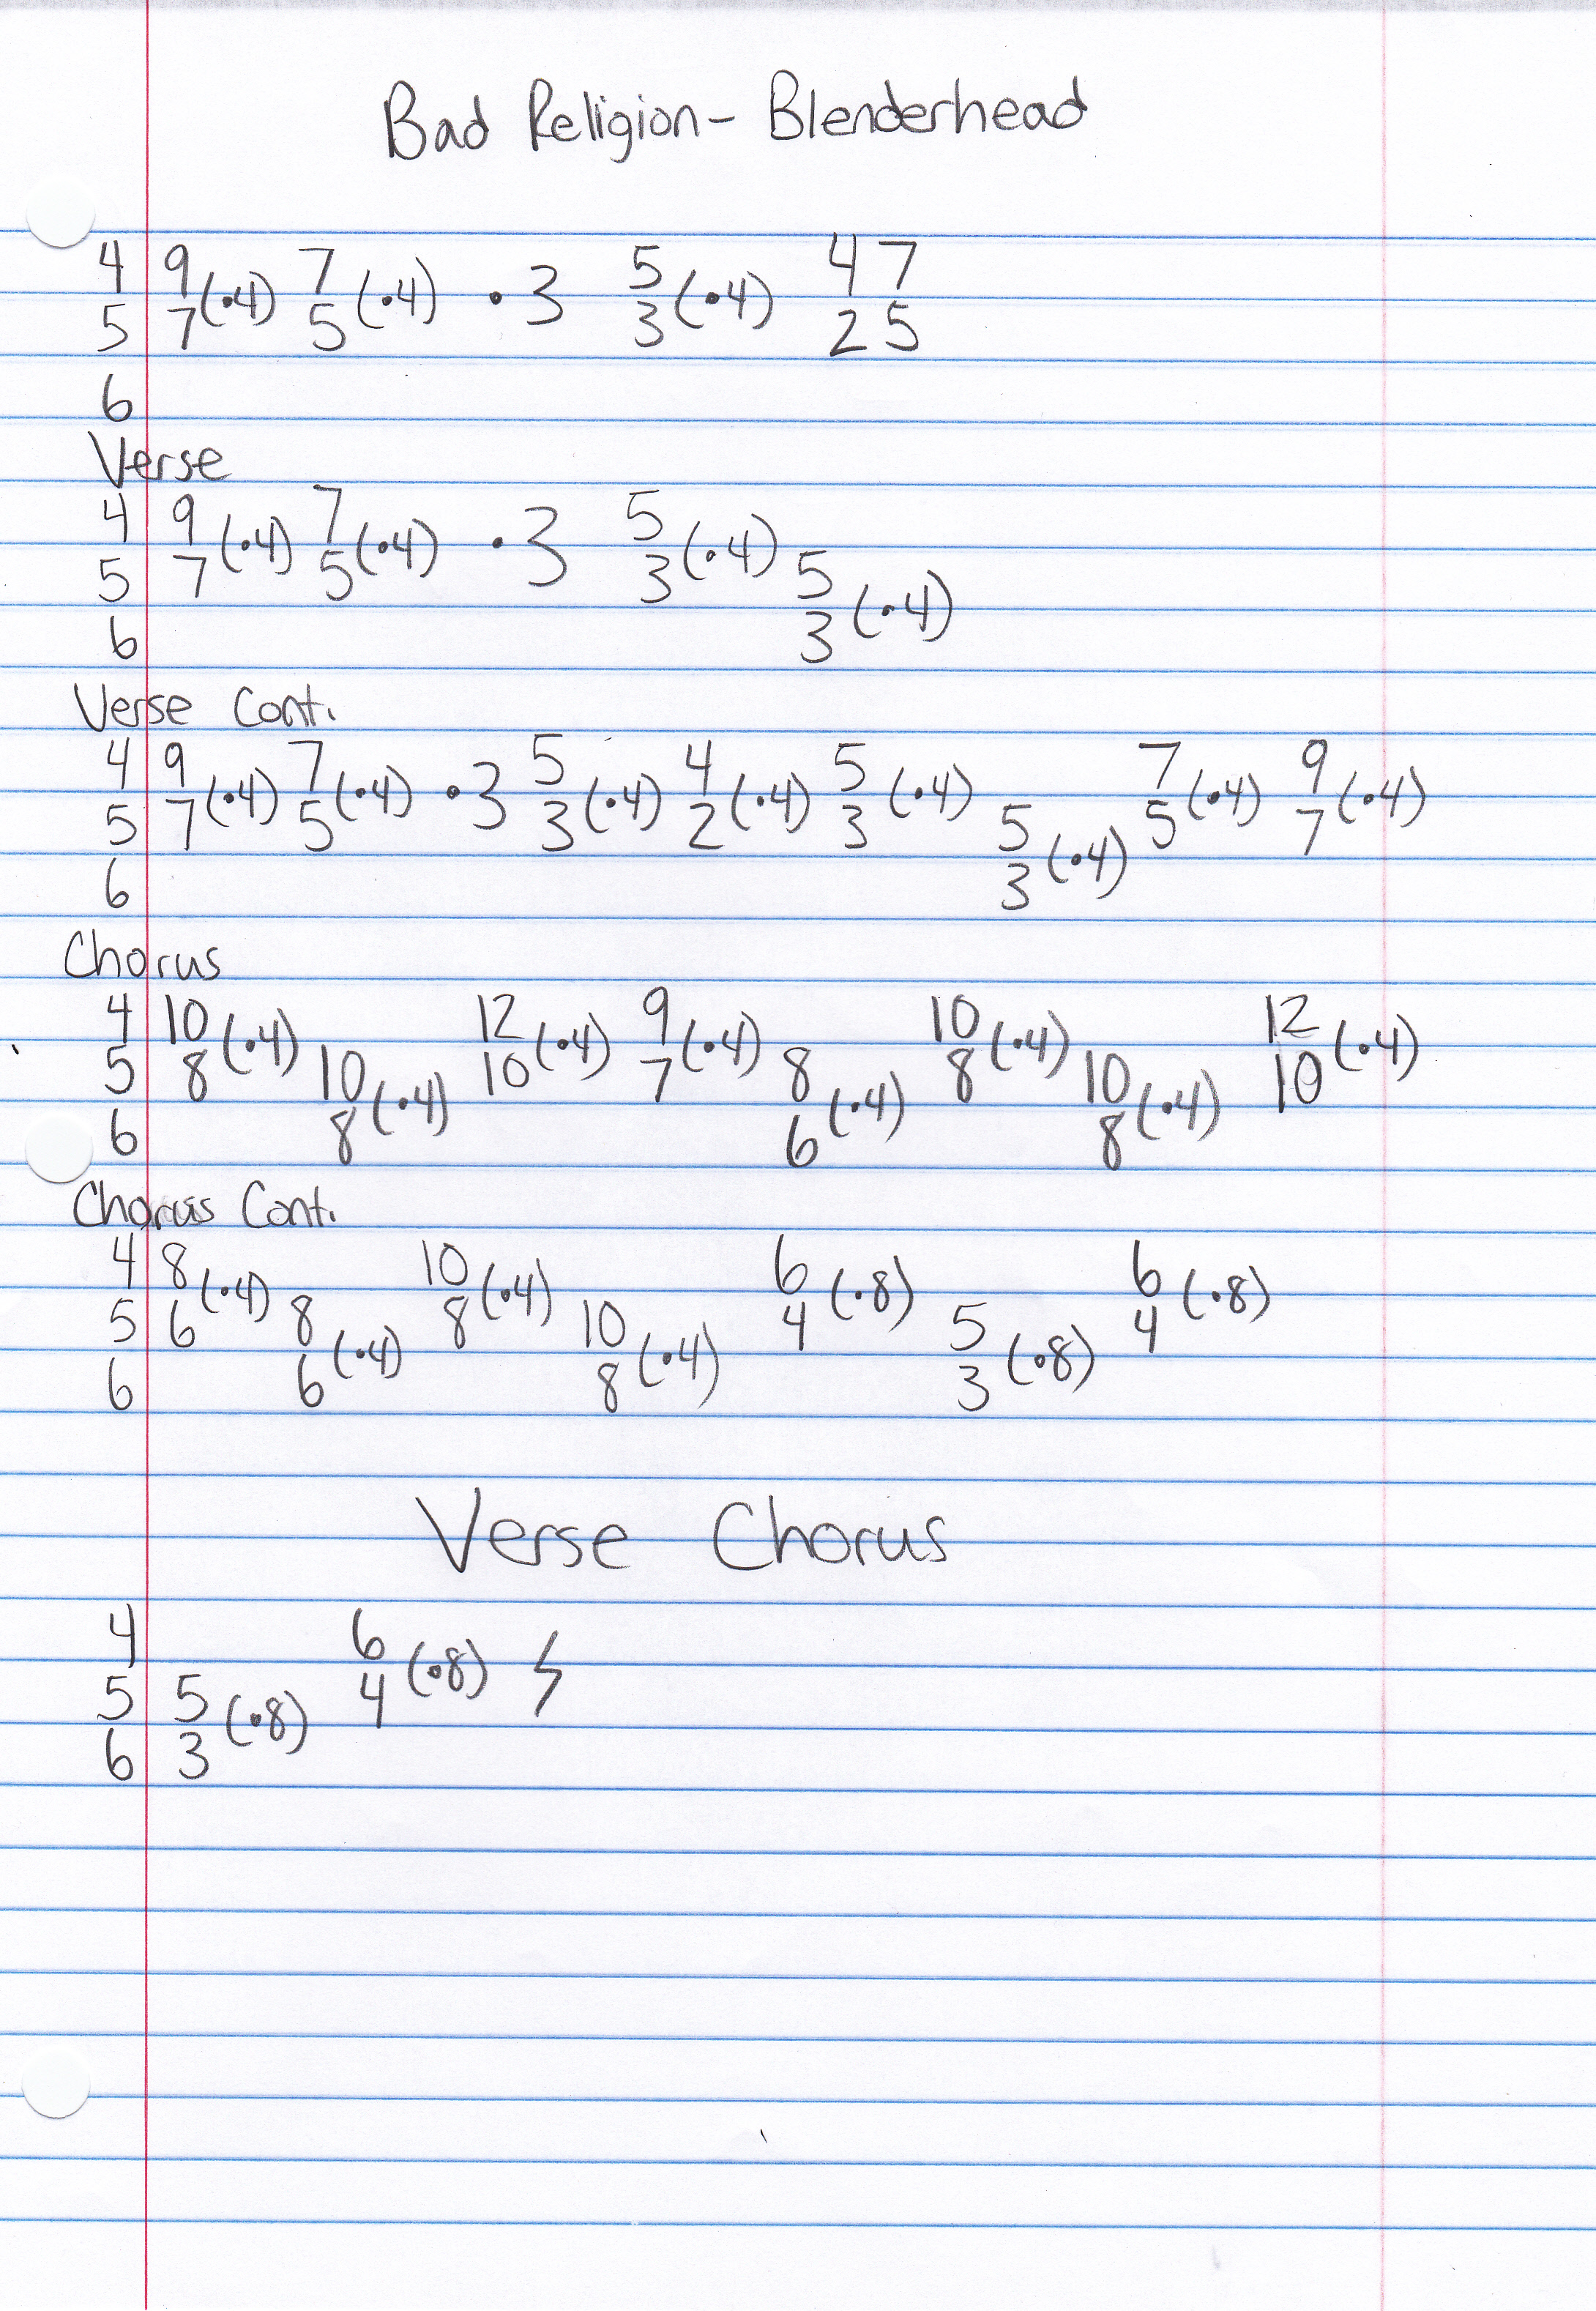 Bad Religion - Blenderhead
4 9 7 5 47
5 7(·4) 5(·4) ·3 3(·4) 25
6
Verse
4 9 7 5
5 7(·4) 5(·4) ·3 3(·4) 5
6 3(·4)
Verse Cont.
4 9 7 5 4 5 7 9
5 7(·4) 5(·4) ·3 3(·4) 2(·4) 3(·4) 5 5(·4) 7(·4)
6 3(·4)
Chorus
4 10 12 9 10 12
5 8(·4) 10 10(·4) 7(·4) 8 8(·4) 10 10(·4)
6 8(·4) 6(·4) 8(·4)
Chorus Cont.
4 8 10 6 6
5 6(·4) 8 8(·4) 10 4(·8) 5 4(·8)
6 6(·4) 8(·4) 3(·8)
Verse Chorus
4 6
5 5 4(·8)
6 3(·8)